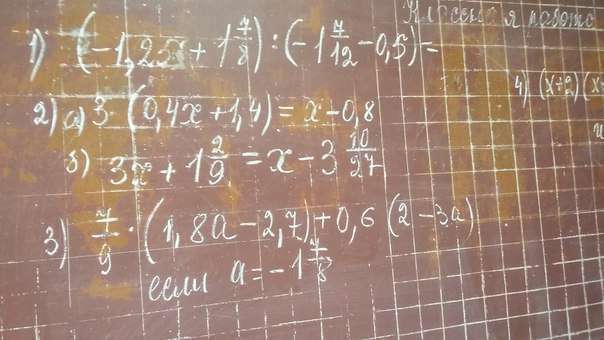 Классная работа
1) (-1,25 + 1 7/8) : (-1 7/12 - 0,5) =
2) а) 3 · (0,4x + 1,4) = x - 0,8
б) 3x + 1 2/9 = x - 3 10/27
3) 7/9 · (1,8a - 2,7) + 0,6 (2 - 3a)
если a = -1 7/8
4) (x+2) (x